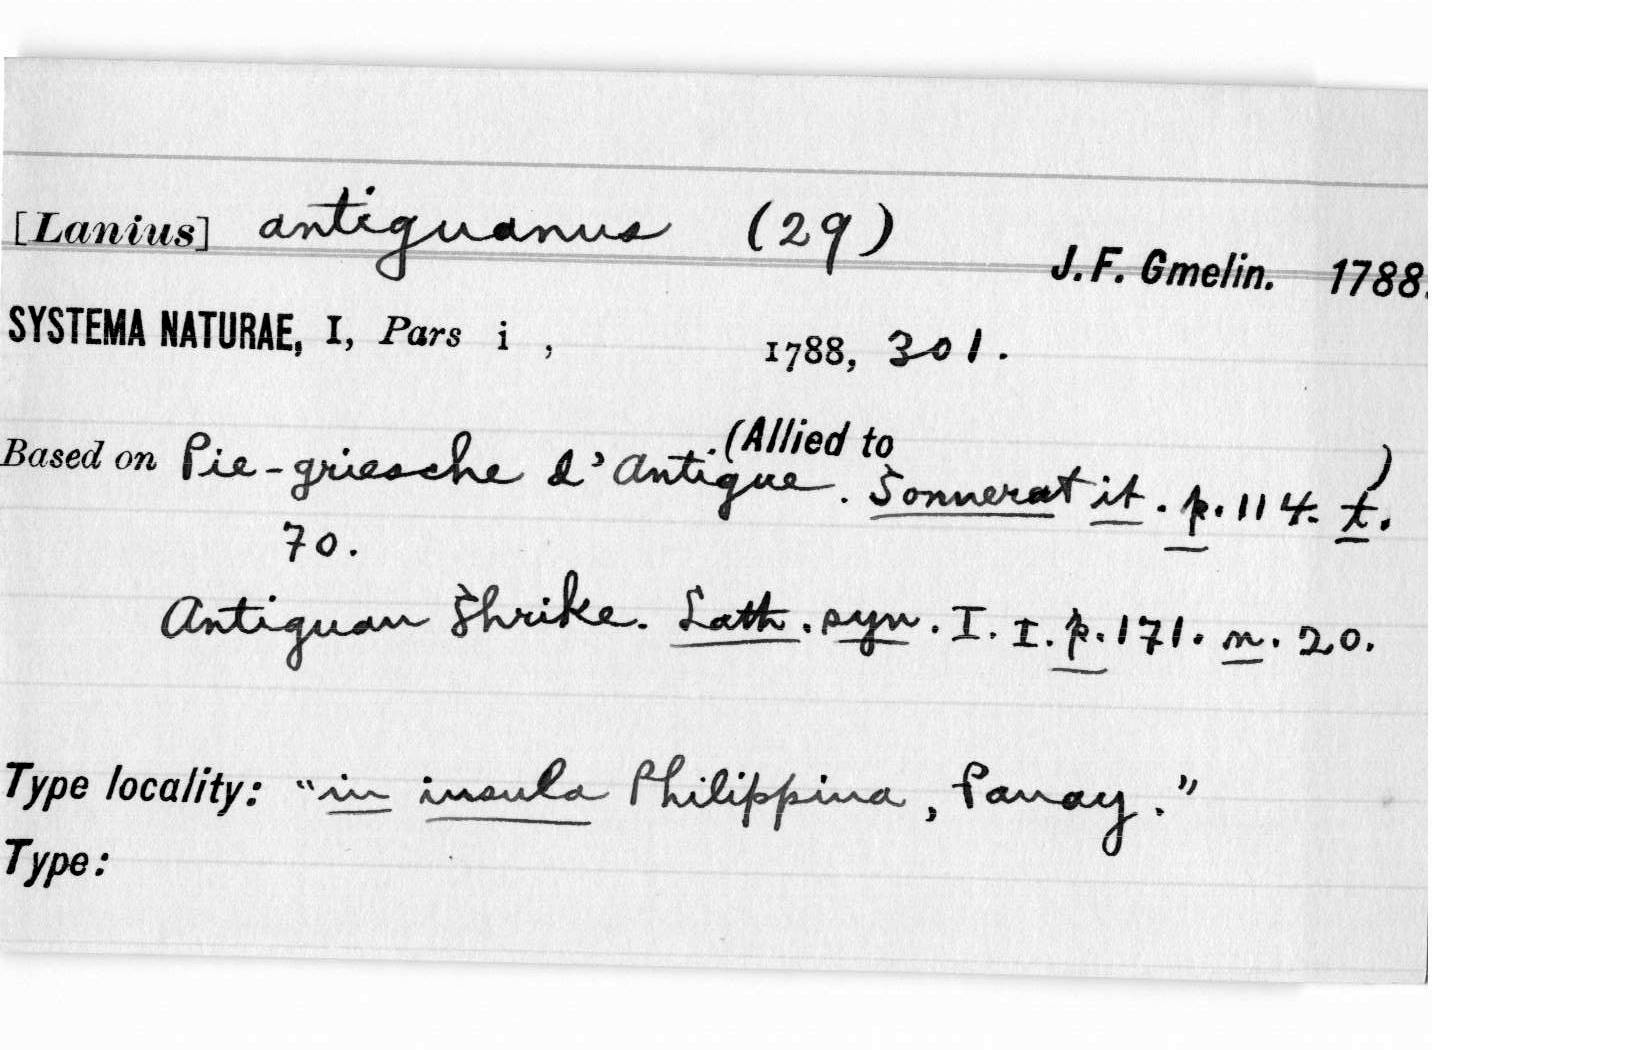 [Lanius] antiguanus (29)
J. F. Gmelin. 1788.
SYSTEMA NATURAE, I, Pars i , 1788, 301.
(Allied to )
Based on Pie-griesche d'Antigue. Sonnerat it. p. 114. t.
70.
Antiguan Shrike. Lath. syn. I. I. p. 171. n. 20.
Type locality: "in insula Philippina, Panay."
Type: